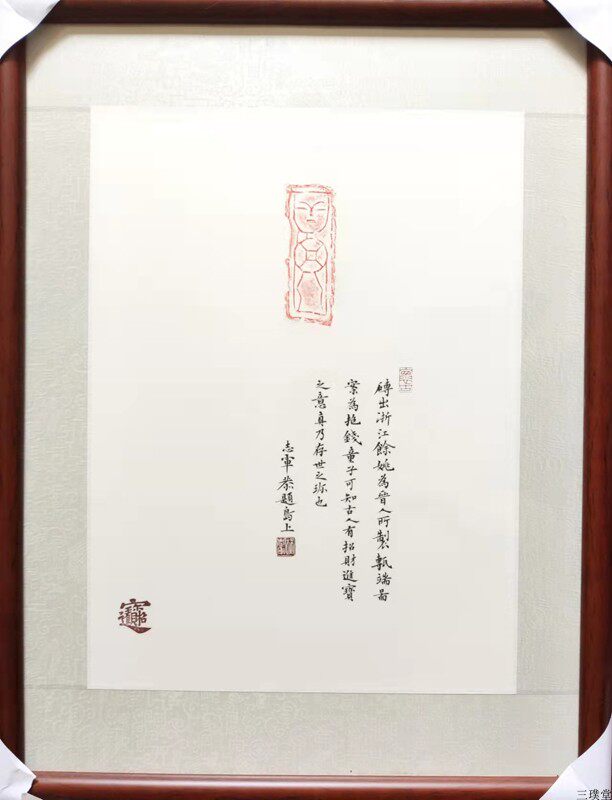 磚出浙江餘姚為晉人所製甎端啚
案為抱錢童子可知古人有招財進寶
之意真乃存世之珎也
志軍恭題島上
招財進寶
三璞堂